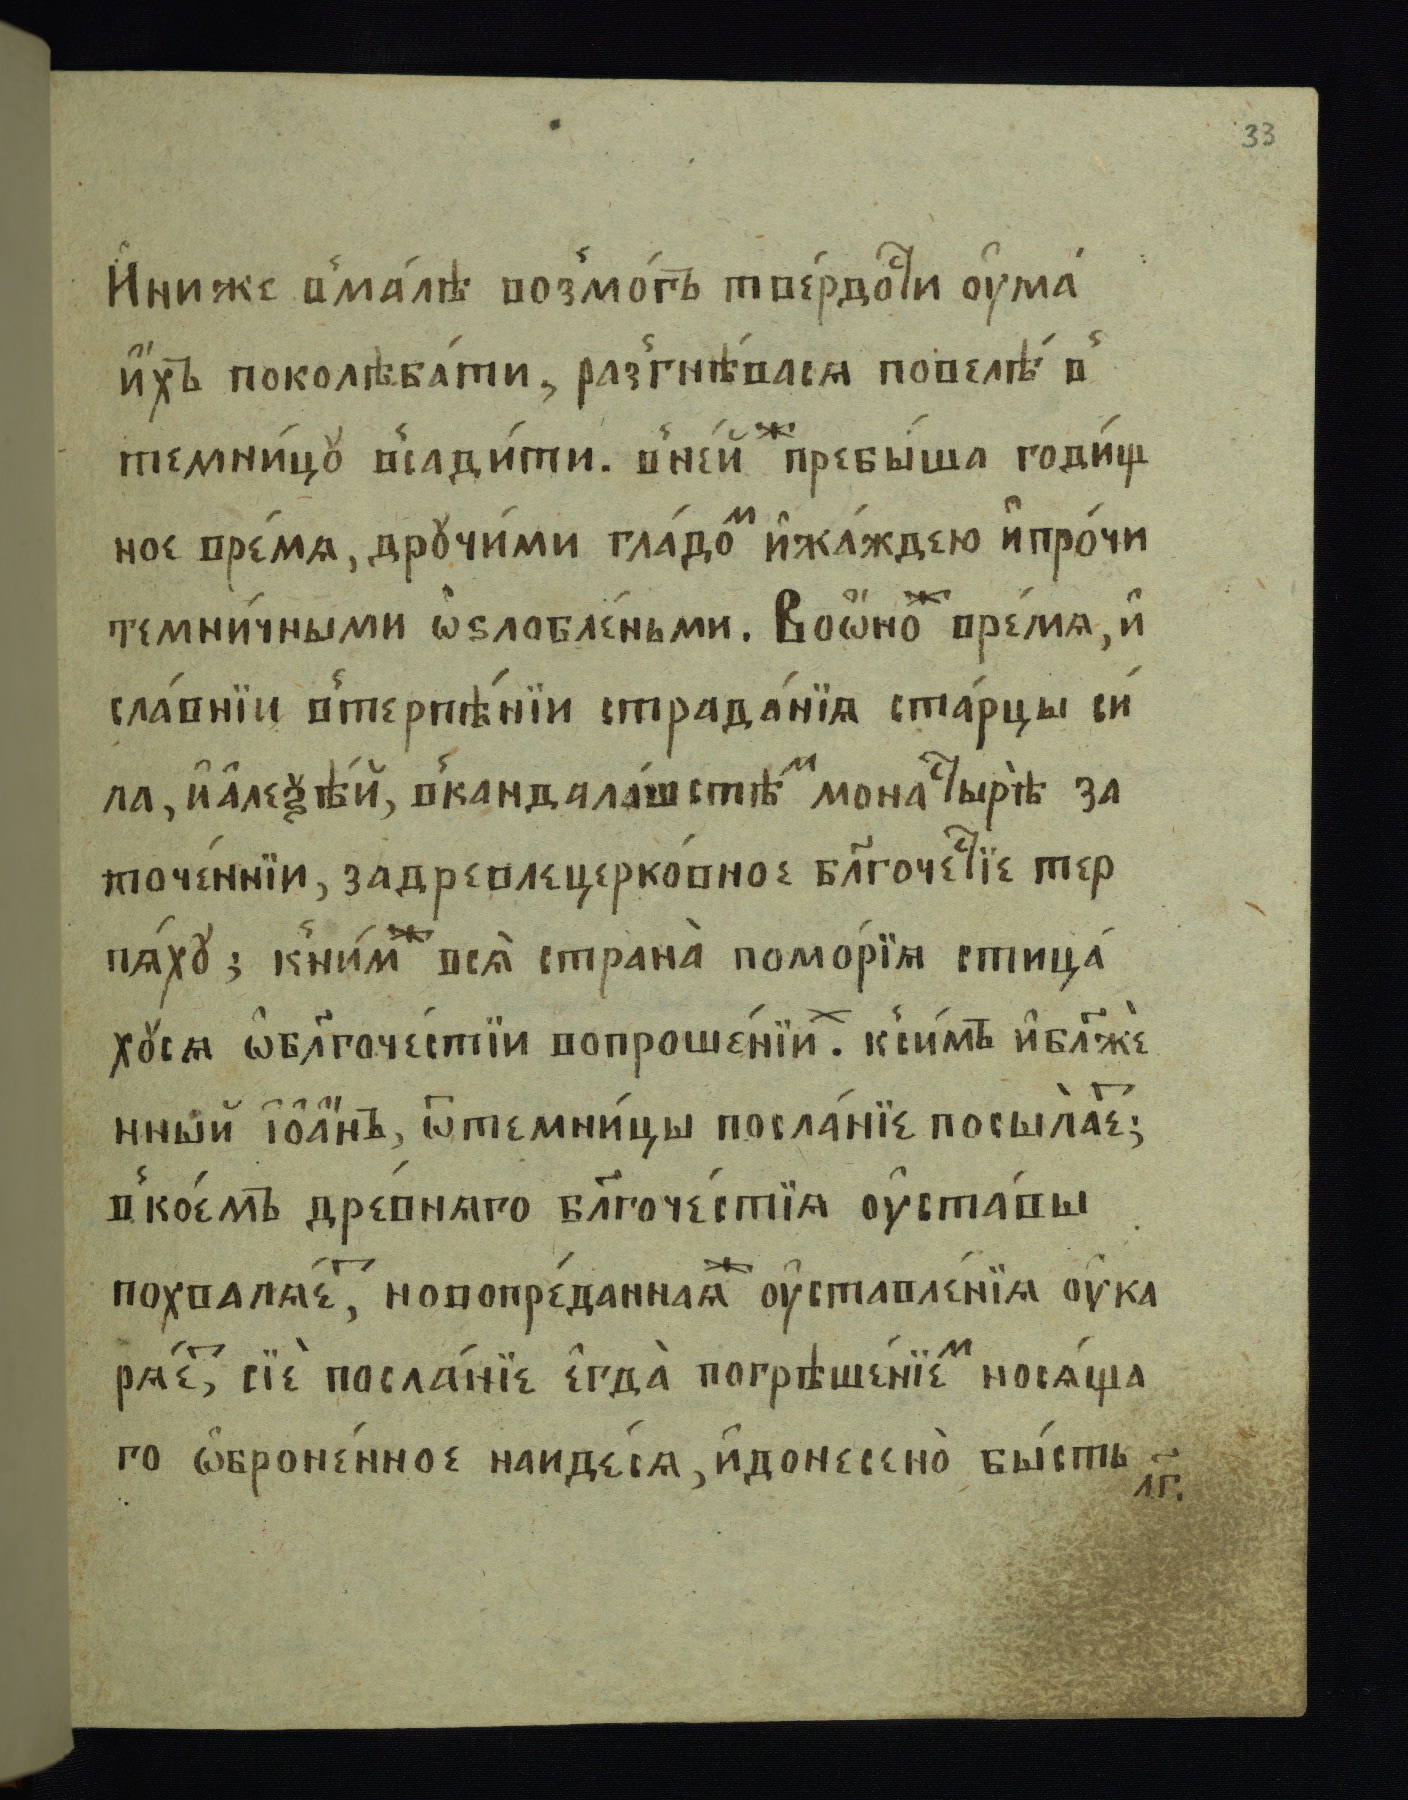 33
И҆ниже в̾ма́лѣ воз̾мо́гъ тве́рдоⷭ҇ти ᲂу҆ма̀
и҆́хъ поколѣба́ти, раз̾гнѣ́васѧ повелѣ́ в̾
темни́цꙋ в̾сади́ти. в̾не́йⷤ пребы́ша годи́щ
ное вре́мѧ, дрꙋчи́ми гла́доⷨ и҆жа́ждею и҆про́чи
темни́чными ѡ҆ѕлобле́ньми. Воѡ҆́ноⷤ вре́мѧ, и҆
сла́внїи в̾терпѣ́нїи страда́нїѧ ста́рцы си́
ла, и҆а҆леѯѣ́й, в̾кандала́шстѣⷨ монаⷭ҇ты́рѣ за
точе́ннїи, задревлецерко́вное бл҃гоче́ⷭ҇тїе тер
пѧ́хꙋ; к̾ни́мⷤ всѧ̀ страна̀ помо́рїѧ стица́
хꙋсѧ ѡ҆бл҃гоче́стїи вопроше́нїиⷯ. к̾си́мъ и҆бл҃же́
нный і҆ѻ҆а҆́нъ, ѿтемни́цы посла́нїе посыла́еⷮ;
в̾ко́емъ дре́внѧго бл҃гоче́стїѧ ᲂу҆ста́вы
похвалѧ́еⷮ, новопре́даннаѧⷤ ᲂу҆ставле́нїѧ ᲂу҆ка
рѧ́еⷮ, сїѐ посла́нїе є҆гда̀ погрѣше́нїеⷨ носѧ́ща
го ѡ҆броне́нное наиде́сѧ, и҆донесено̀ бы́сть
л҃г.